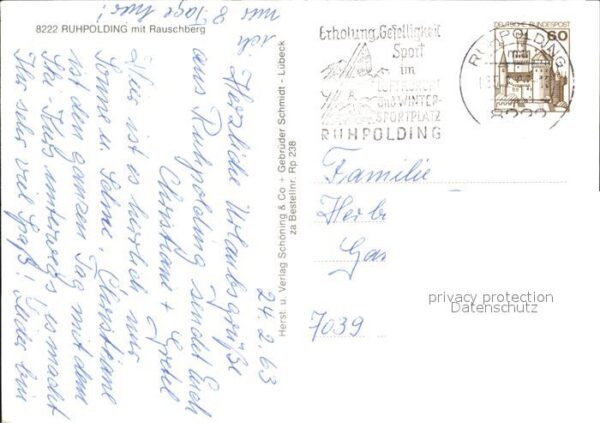 8222 RUHPOLDING mit Rauschberg
24.2.63
Herzliche Urlaubsgrüße
aus Ruhpolding sendet Euch
Christiane + Gretel
Hier ist es herrlich nur
Sonne u. Schnee. Christiane
ist den ganzen Tag mit dem
Ski-Kurs unterwegs, es macht
Ihr sehr viel Spaß! Leider bin
ich nur 8 Tage hier!
Herst. u. Verlag Schöning & Co + Gebrüder Schmidt - Lübeck
za Bestellnr. Rp 238
Erholung, Geselligkeit
Sport
im
LUFTKURORT
und WINTER-
SPORTPLATZ
RUHPOLDING
DEUTSCHE BUNDESPOST
60
RUHPOLDING
8222
Familie
Herb
Gar
7039
privacy protection
Datenschutz